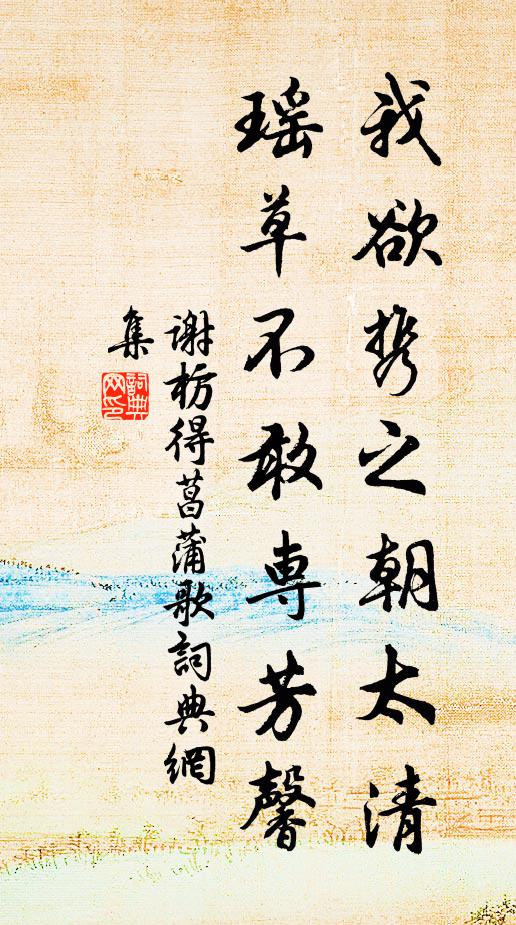 我欲携之朝太清
瑶草不敢専芳馨
谢枋得菖蒲歌詞典網
集
詞典
网印